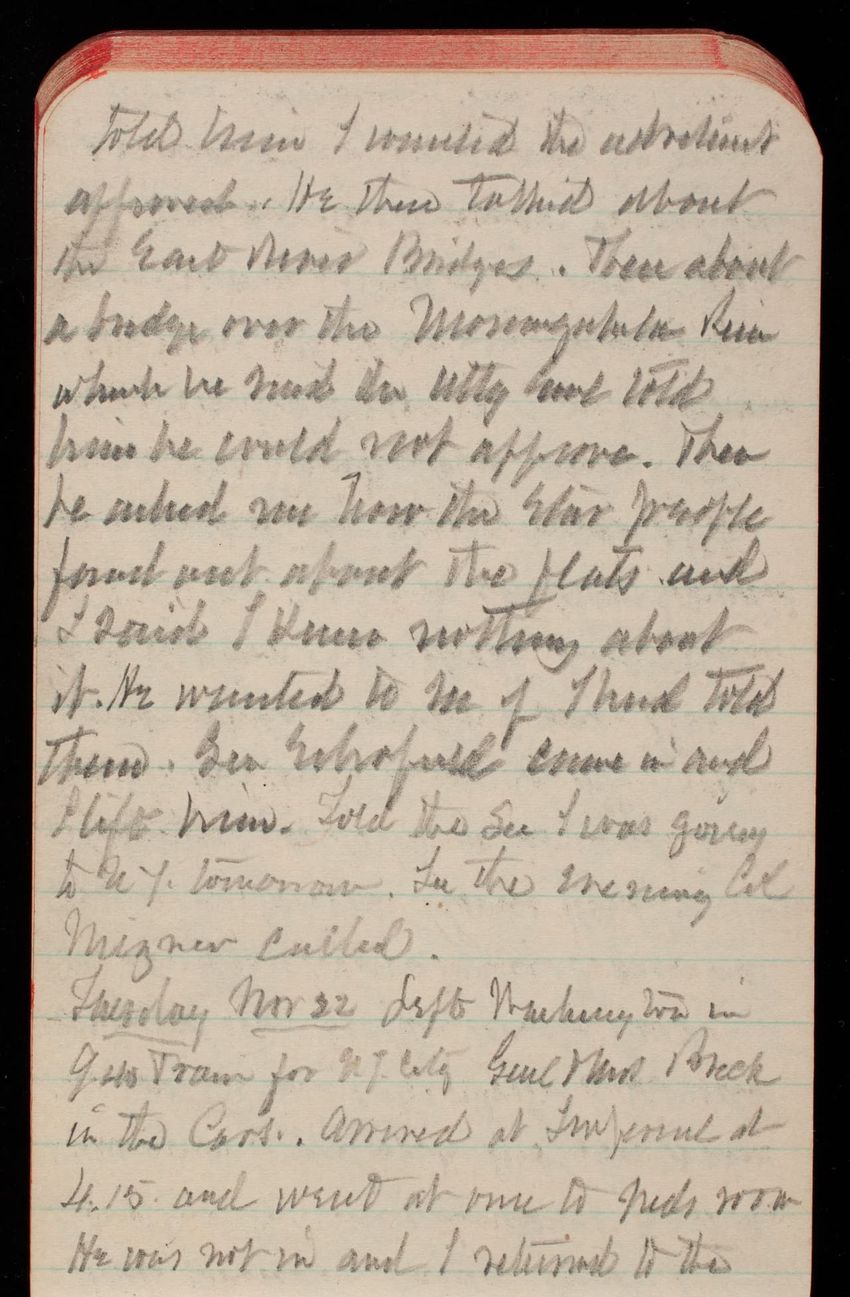 told him I wanted the
approved. He then talked about
the East River Bridges. Then about
a bridge over the Monongahela River
which he said the Atty Genl told
him he could not approve. Then
he asked me how the Star people
found out about the flats and
I said I knew nothing about
it. He wanted to see if I had told
them. Gen Schofield came in and
I left him. Told the Sec I was going
to N Y. tomorrow. In the evening Col
Mizner called.
Tuesday Nov 22 Left Washington in
Train for N Y. City Genl & Mrs Breck
in the Cars. Arrived at Imperial at
4.15. and went at once to room
He was not in and I returned to the